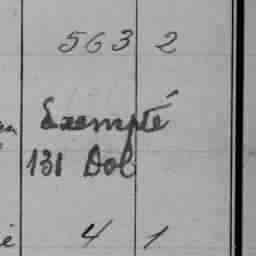 563 2
Exempté
131 Dol
é 4 1